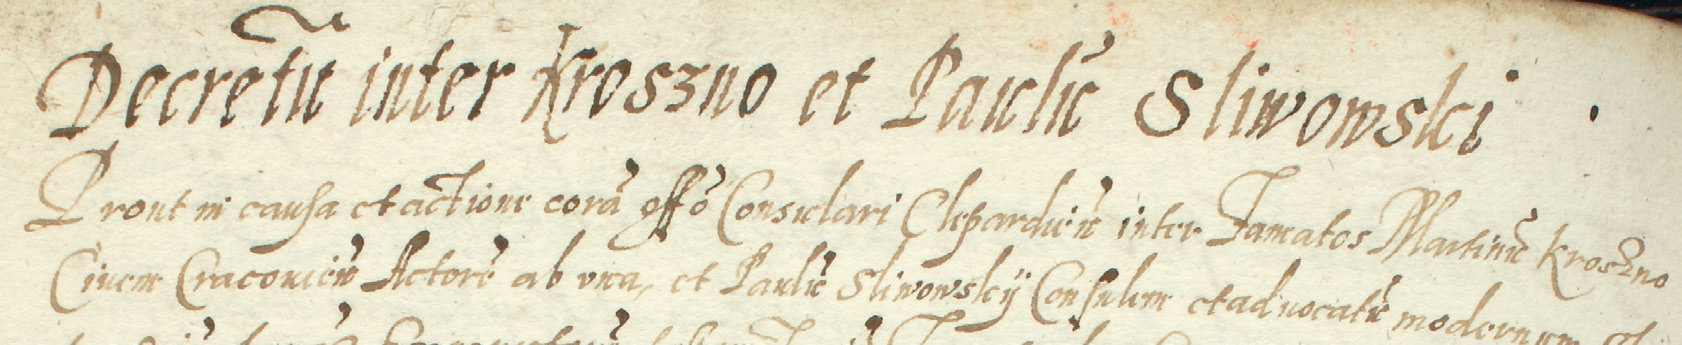 Decretũ inter Kroszno et Paulũ Sliwowski .
Prout in causa et actione corã offõ Consulari Clepardieñ inter Famatos Martinũ Kroszno
Ciuem Cracouieñ Actorẽ ab vna, et Paulũ Sliwowskij Consulem et aduocatũ modernum